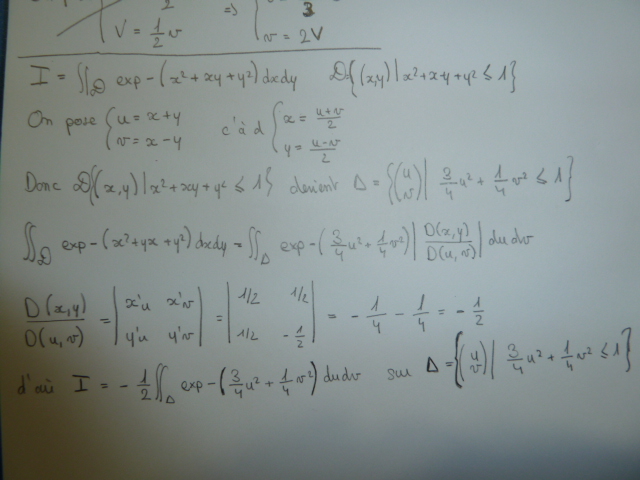 2 => 3
V = 1/2 v    v = 2V
I = ∬_D exp-(x²+xy+y²)dxdy    D{(x,y)|x²+xy+y² ≤ 1}
On pose { u = x+y    c'à d { x = (u+v)/2
v = x-y    y = (u-v)/2
Donc D{(x,y)|x²+xy+y² ≤ 1} devient Δ = {(u v)| 3/4 u² + 1/4 v² ≤ 1}
∬_D exp-(x²+yx+y²)dxdy = ∬_Δ exp-(3/4 u² + 1/4 v²)|D(x,y)/D(u,v)|dudv
D(x,y)/D(u,v) = |x'u x'v y'u y'v| = |1/2 1/2 1/2 -1/2| = -1/4 - 1/4 = -1/2
d'où I = -1/2 ∬_Δ exp-(3/4 u² + 1/4 v²)dudv sur Δ = {(u v)| 3/4 u² + 1/4 v² ≤ 1}